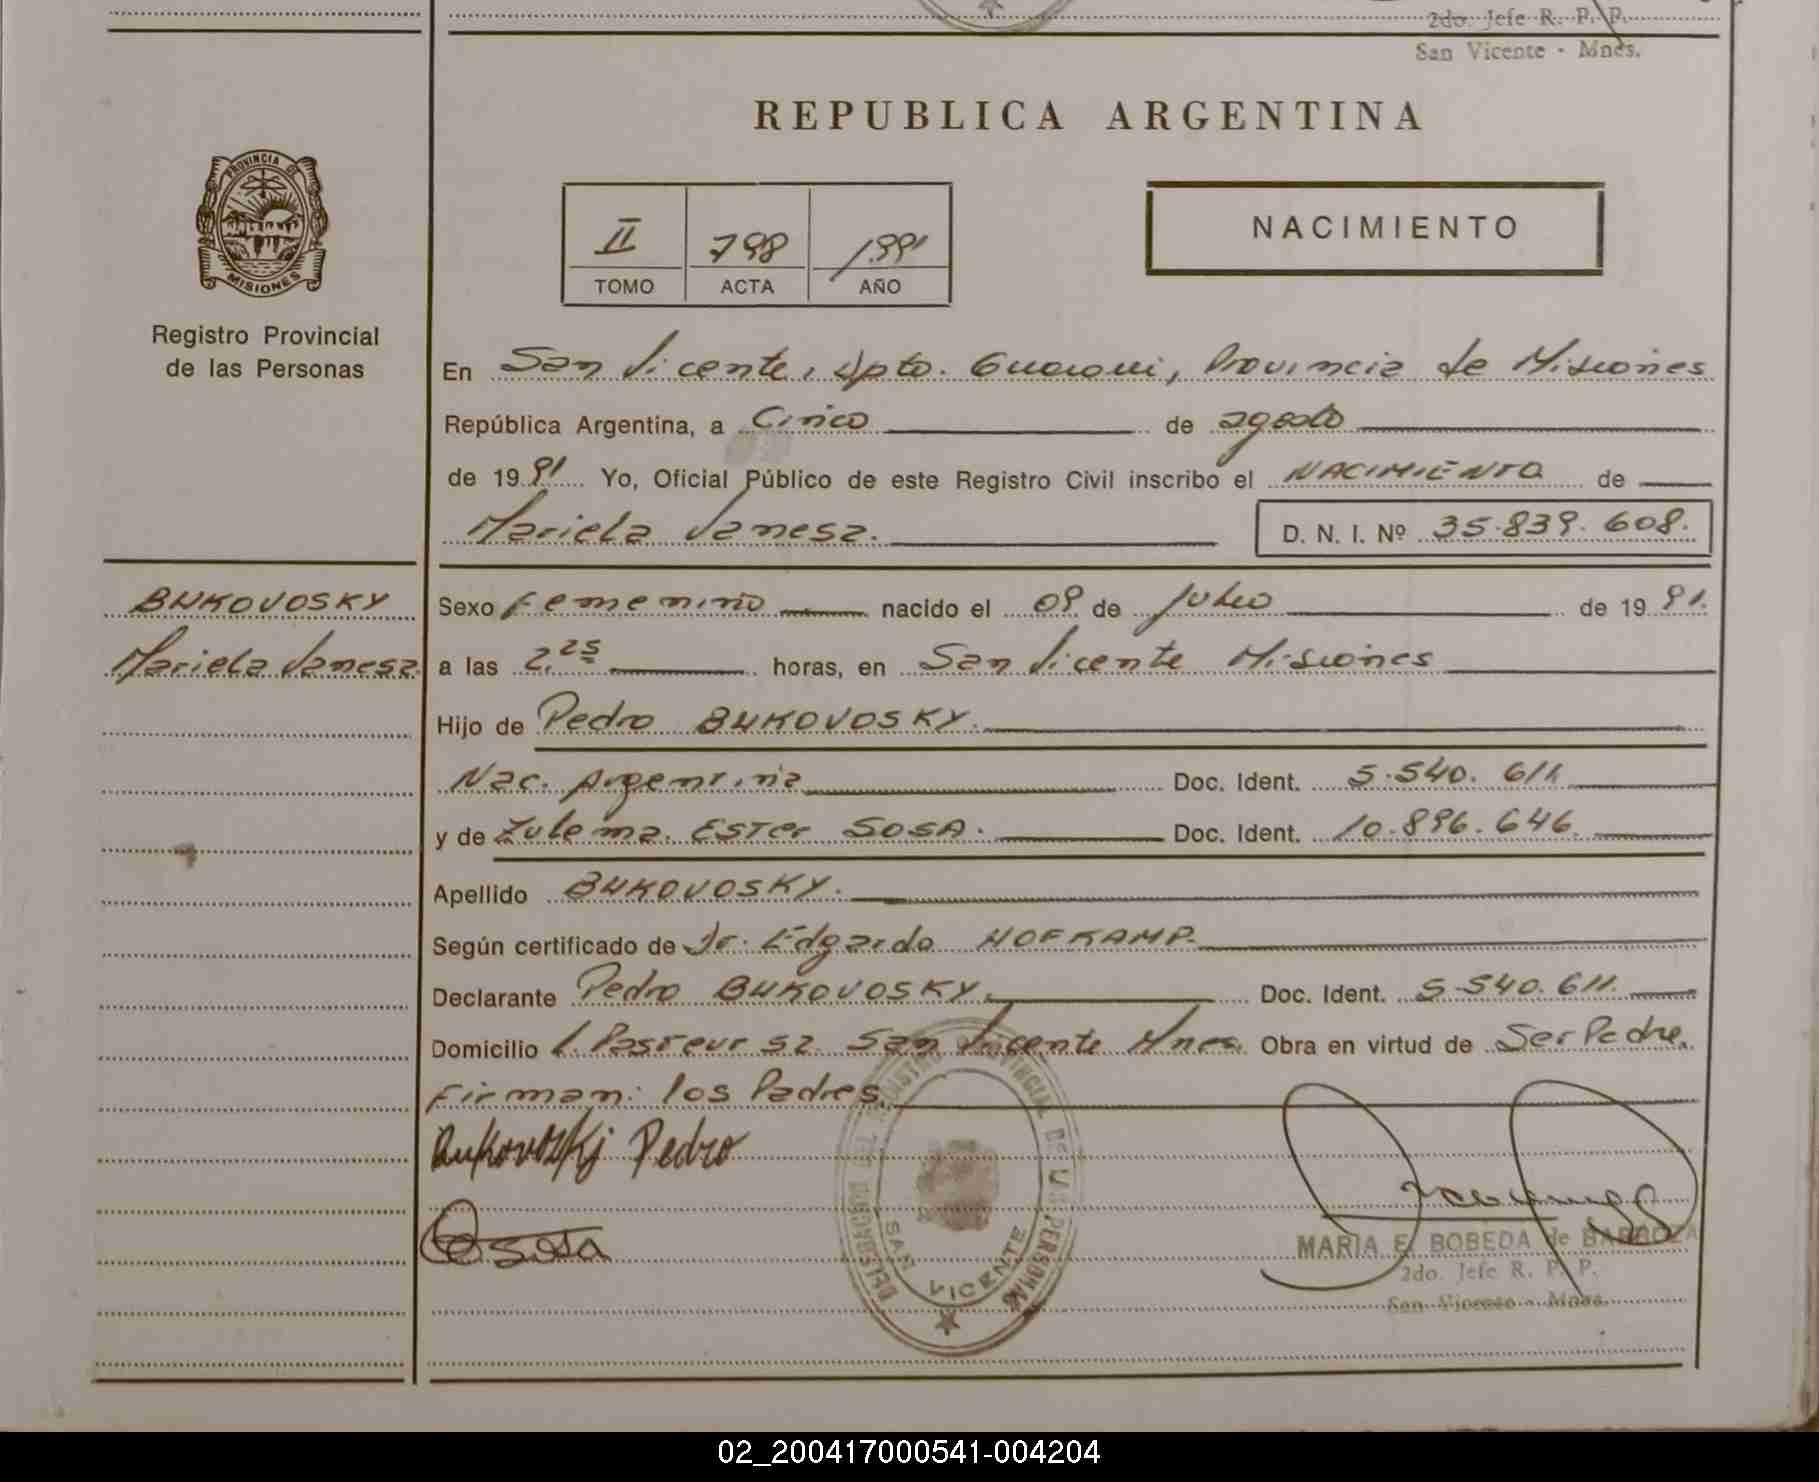 2do. Jefe R. P. P.
San Vicente - Mnes.
REPUBLICA ARGENTINA
PROVINCIA DE
MISIONES
Registro Provincial
de las Personas
II 798 1991
TOMO ACTA AÑO
NACIMIENTO
En San Vicente, Dpto. Guarani, Provincia de Misiones
República Argentina, a Cinco de agosto
de 1991 Yo, Oficial Público de este Registro Civil inscribo el NACIMIENTO de
Mariela Vanesa. D. N. I. Nº 35.839.608.
BUKOVOSKY
Mariela Vanesa
Sexo Femenino nacido el 09 de Julio de 1991.
a las 2.25 horas, en San Vicente Misiones
Hijo de Pedro BUKOVOSKY.
Nac. Argentina Doc. Ident. 5.540.611.
y de Zulema Ester SOSA. Doc. Ident. 10.896.646
Apellido BUKOVOSKY.
Según certificado de Dr. Edgardo HOFKAMP.
Declarante Pedro BUKOVOSKY Doc. Ident. 5.540.611.
Domicilio L. Pasteur 52 San Vicente Mnes. Obra en virtud de Ser Padre.
Firman: los Padres.
Bukovoskj Pedro
Sosa
SAN VICENTE
MARIA E. BOBEDA de BARBOZA
2do. Jefe R. P. P.
San Vicente - Mnes.
02_200417000541-004204